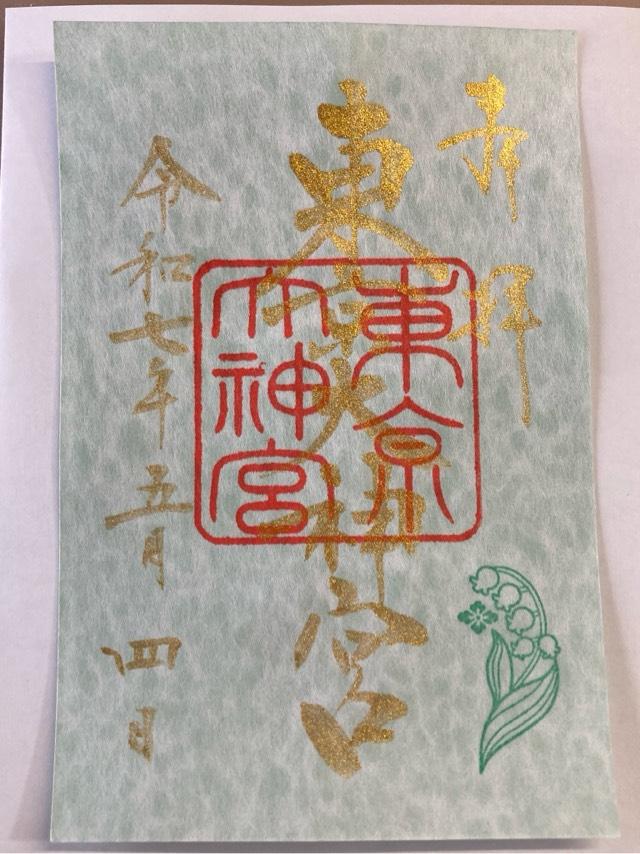 奉拝
東京大神宮
東京大神宮
令和七年五月四日